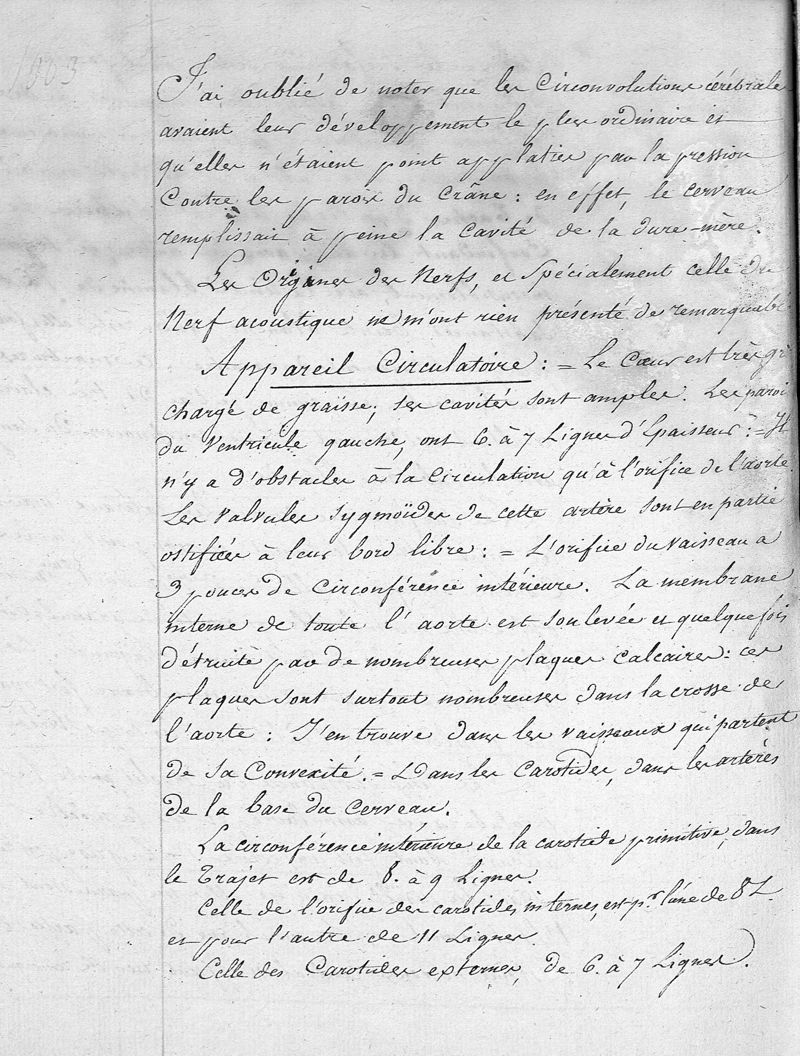 J'ai oublié de noter que les Circonvolutions cérébrales
avaient leur développement le plus ordinaire et
qu'elles n'étaient point applaties par la pression
Contre les parois du Crâne : en effet, le cerveau
remplissait à peine la cavité de la dure-mère.
Les Origines des Nerfs, et Spécialement celle du
Nerf acoustique ne m'ont rien présenté de remarquable
Appareil Circulatoire : = Le Cœur est très
chargé de graisse, ses cavités sont amples. Les parois
du Ventricule gauche, ont 6. à 7 Lignes d'Epaisseur : = Il
n'y a d'obstacles à la Circulation qu'à l'orifice de l'aorte
Les valvules sygmoïdes de cette artère sont en partie
ossifiées à leur bord libre : = L'orifice du vaisseau a
3 pouces de Circonférence intérieure. La membrane
interne de toute l'aorte est soulevée et quelquefois
détruite par de nombreuses plaques calcaires : ces
plaques sont surtout nombreuses dans la crosse de
l'aorte : J'en trouve dans les vaisseaux qui partent
de sa Convexité. = dans les Carotides, dans les artères
de la base du Cerveau.
La circonférence intérieure de la carotide primitive, dans
le Trajet est de 8. à 9 Lignes.
Celle de l'orifice des carotides internes, est pr l'une de 8 L.
et pour l'autre de 11 Lignes.
Celle des Carotides externes, de 6. à 7 Lignes.